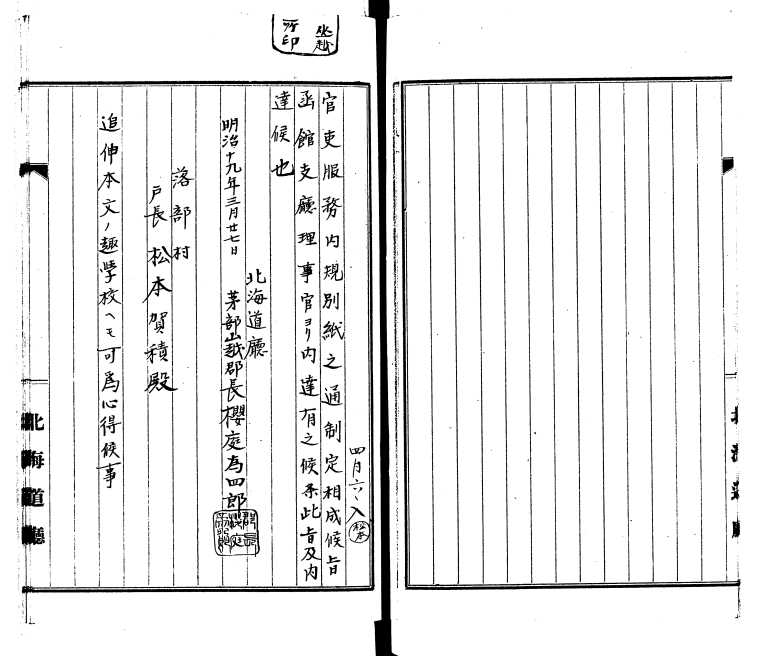 四月六、入 松本
官吏服務内規別紙之通制定相成候旨
函館支廳理事官ヨリ内達有之候条此旨及内
達候也
明治十九年三月廿七日
北海道廳
茅部山越郡長櫻庭為四郎
落部村
戸長 松本賀積殿
追伸本文ノ趣学校ヘモ可為心得候事
北海道廳